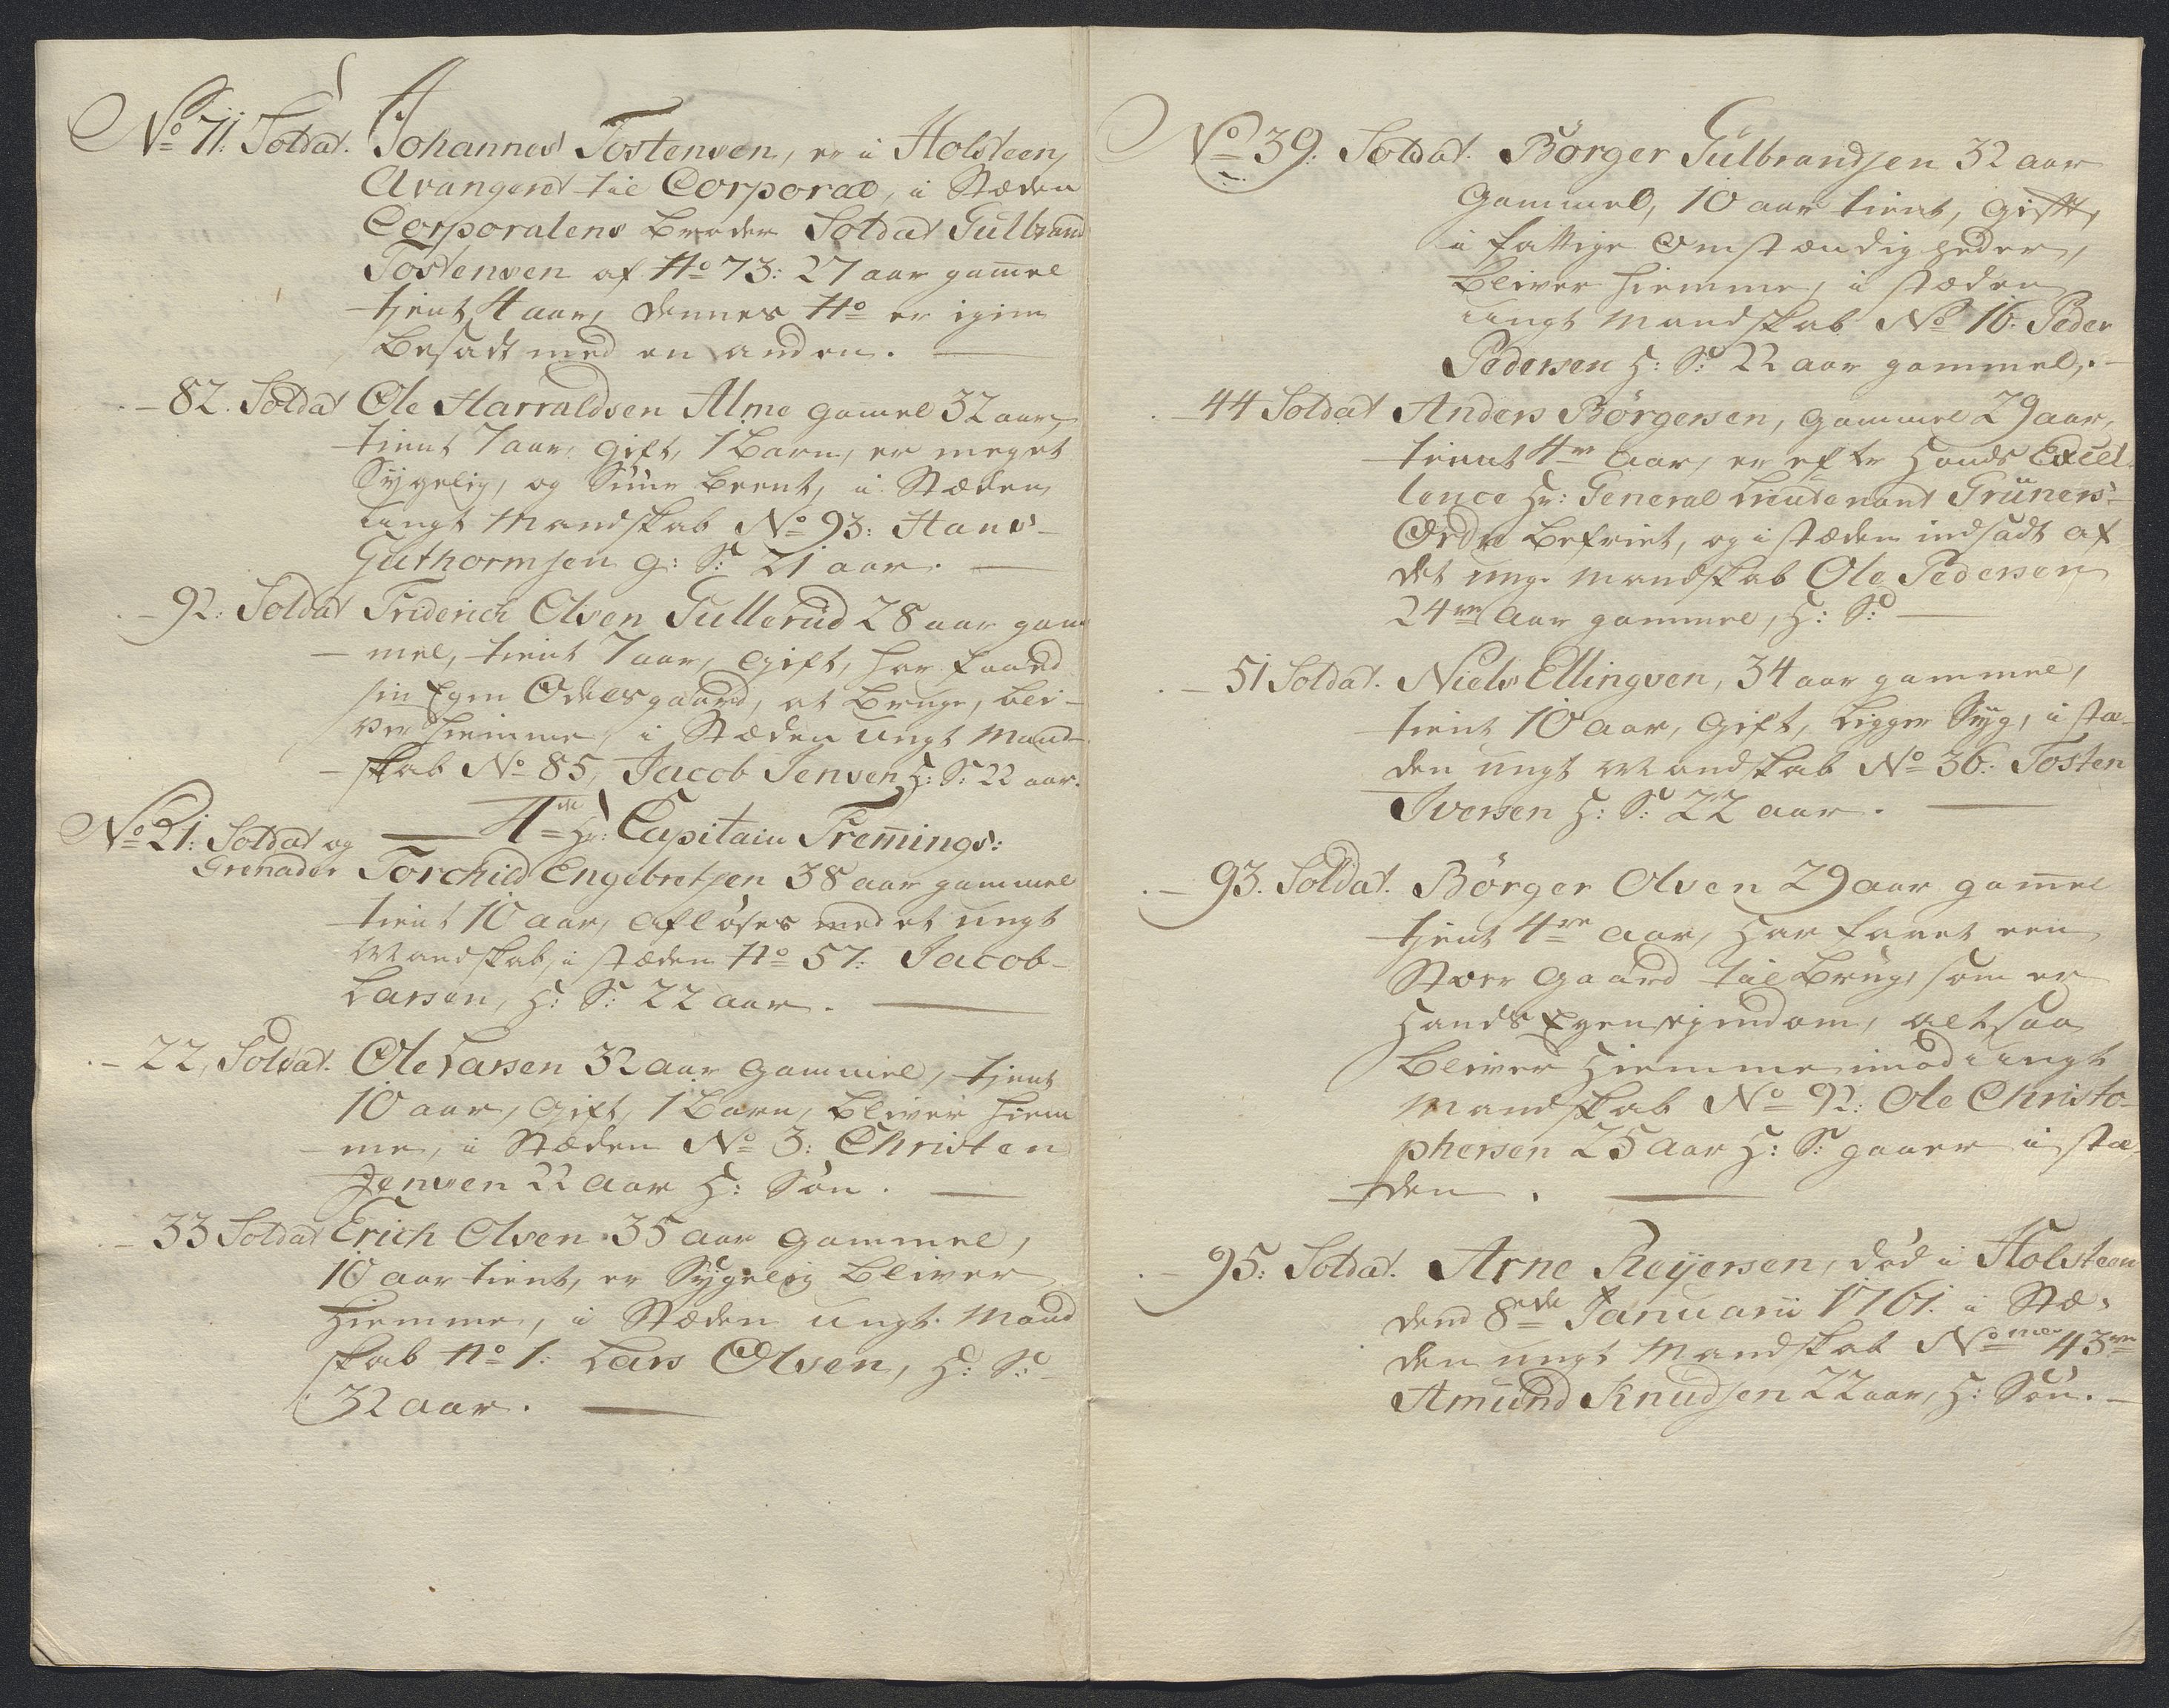 No 71. Soldat. Johannes Tostensen, er i Holsteen
Avangeret til Corporal, i Stæden
Corporalens broder Soldat Gulbrand
Tostensen af No 73: 27 aar gam̄el
tjent 4 aar, dennes No er igien
besadt med en anden.
- 82. Soldat Ole Harraldsen Alme gam̄el 32 aar
tient 7 aar, gift, 1 Barn, er meget
Sygelig, og Siine brent, i Stæden
ungt Mandskab No 93: Hans
Guthormsen g: S: 21 aar.
- 92: Soldat Friderich Olsen Gullerud 28 aar gam
mel, tient 7 aar, gift, har faaed
sin Egen Odelsgaard, at bruge, bli-
ver hiemme, i Stæden ungt Mand-
skab No 85, Jacob Jensen H: S: 22 aar.
4de Hr: Capitain Frem̄ings:
No 21: Soldat og
Grenader Torchild Engebretsen 38 aar gammel
tient 10 aar, afløses med et ungt
Mandskab, i stæden No 57: Jacob
Larsen, H: S: 22 aar.
- 22, Soldat. Ole Larsen 32 aar gammel, tjent
10 aar, gift, 1 Barn, bliver hiem
me, i Stæden No 3: Christen
Jensen 22 aar H: Søn.
- 33 Soldat Erich Olsen 35 aar gammel,
10 aar tient, er Sygelig bliver
hiemme, i Stæden ungt Mand
skab No 1: Lars Olsen, H: S:
32 aar.
No 39: Soldat. Børger Gulbrandsen 32 aar
gammel, 10 aar tient, gift,
i fattige Omstændigheder,
bliver hiemme, i stæden
ungt Mandskab No 16. Peder
Pedersen H: S: 22 aar gammel.
- 44 Soldat Anders Børgersen, gammel 29 aar,
tient 4re aar, er efter Hands Excel
lence Hr: General Lieutenant Grüners
Ordre befriet, og i stæden indsadt af
det unge Mandskab Ole Pedersen
24re aar gammel, H: S:
- 51 Soldat. Niels Ellingsen, 34 aar gammel,
tient 10 aar, gift, ligger Syg, i stæ-
den ungt Mandskab No 36: Tosten
Iversen H: S: 22 aar.
- 93. Soldat. Børger Olsen 29 aar gam̄el
tjent 4re aar, har faaet een
Stoer gaard til brug, som er
Hands Egen ejendom, altsaa
bliver hiemme imod ungt
Mandskab No 92: Ole Christo-
phersen 25 aar H: S: gaaer i stæ-
den.
- 95: Soldat. Arne Reijersen, død i Holsteen
dend 8de Januarii 1761. i Stæ-
den ungt Mandskab Nomer 43re
Amund Knudsen 22 aar, H: Søn.